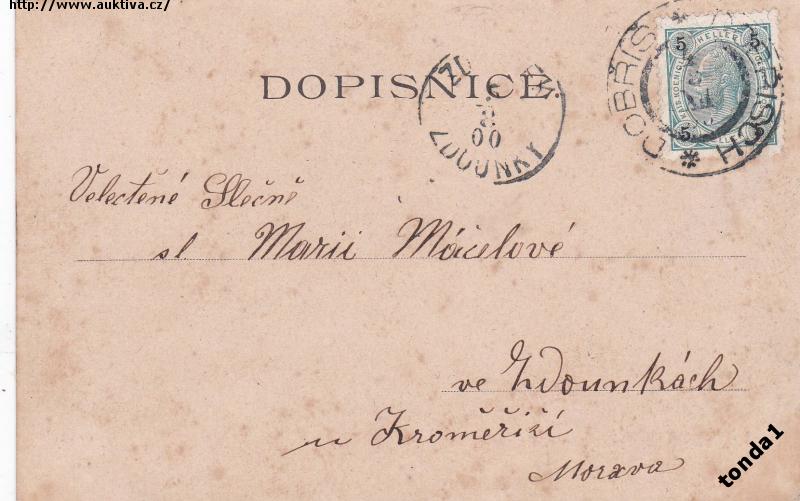 http://www.auktiva.cz/
DOPISNICE.
ZDOUNKY
00
DOBŘÍŠ
5 HELLER 5
5
Velectěné Slečně
sl. Marii Máčelové
ve Zdounkách
u Kroměříží
Morava
tonda1